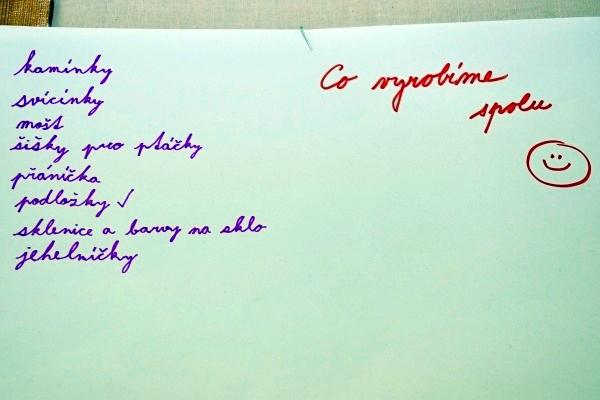 kamínky
svícínky
mošt
šišky pro ptáčky
přáníčka
podložky ✓
sklenice a barvy na sklo
jehelníčky
Co vyrobíme
spolu